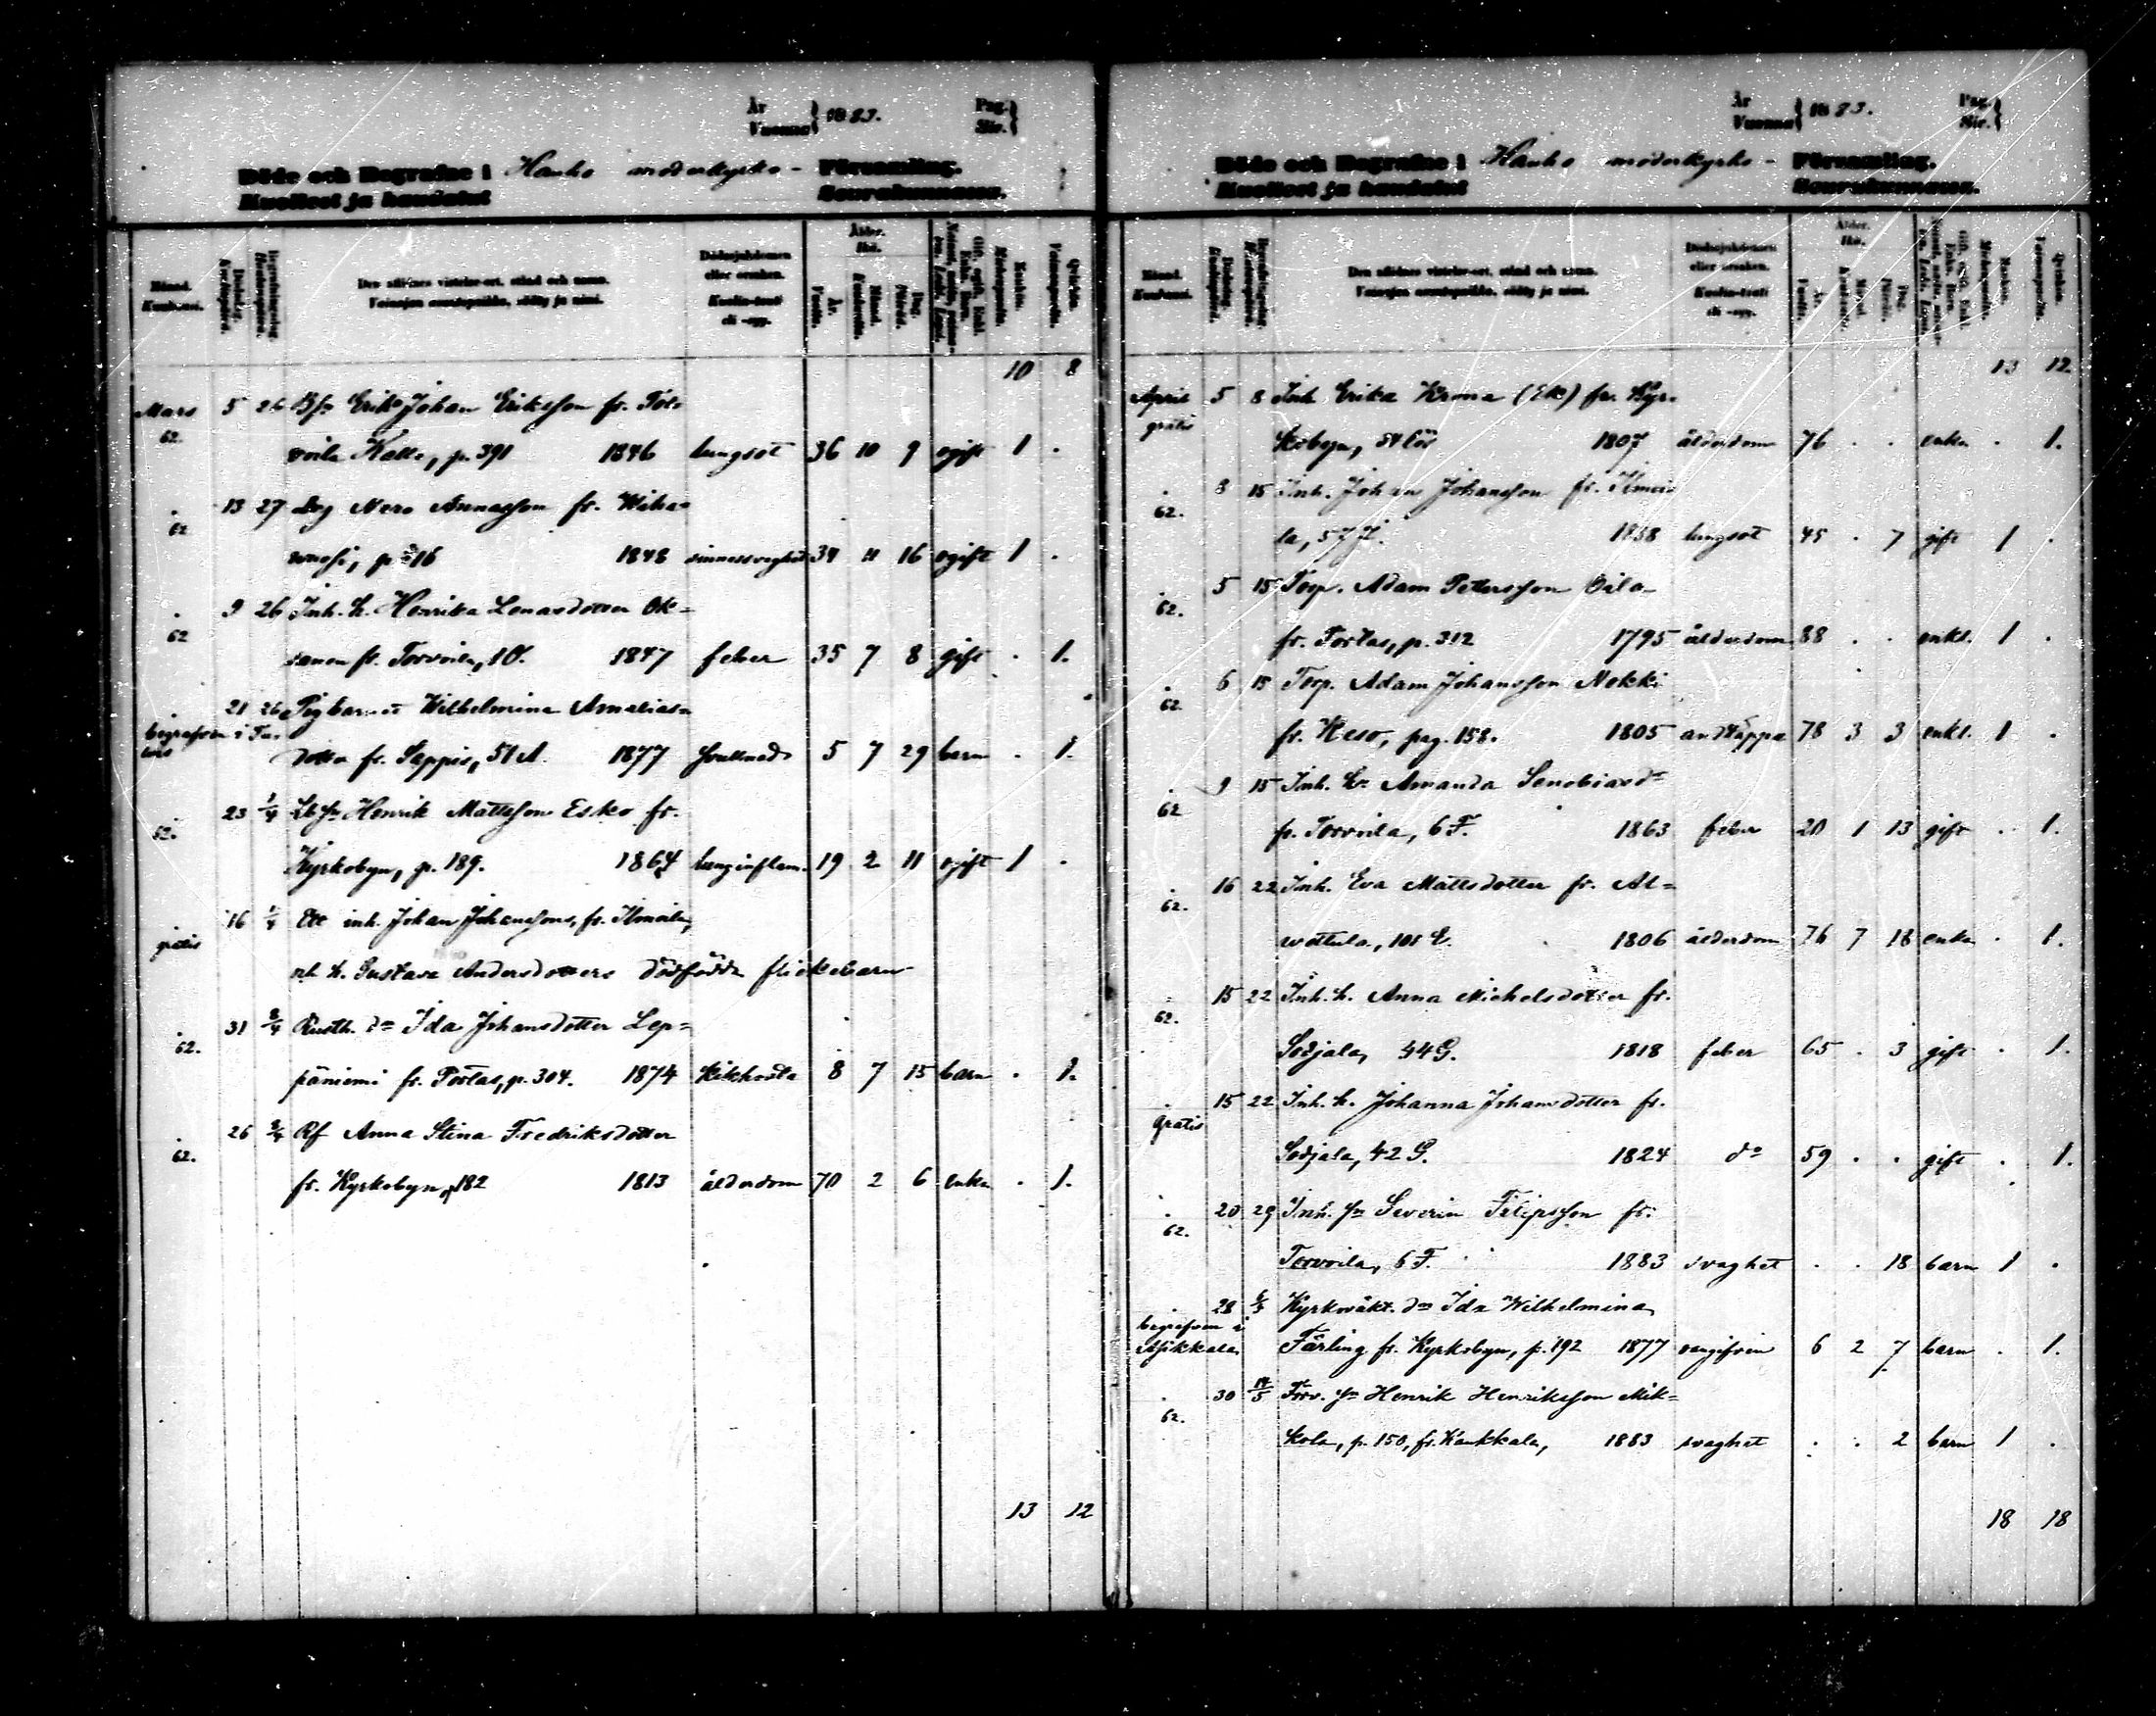 År
Vuonna } 1883.
Pag.
Siv. }
Döde och Begrafne i Hauho moderkyrko- Församling.
Kuolleet ja haudatut Seurakunnassa.
Månad. Kuukausi.
Dödsdag. Kuolinpäivä.
Begrafningsdag. Hautauspäivä.
Den aflidnes vistelse-ort, stånd och namn.
Vainajan asuntopaikka, sääty ja nimi.
Dödssjukdomen eller orsaken.
Kuolin-tauti eli -syy.
Ålder. Ikä.
År. Vuotta.
Månad. Kuukautta.
Dag. Päivää.
Gift, ogift, Enkl. Enka. Barn.
Mankön. Miehenpuolta.
Qvinkön. Vaimonpuolta.
10 8
Mars 5 26 Bs Erik Johan Eriksson fr. Tor-
62.
voila Kalle, p. 391 1846 lungsot 36 10 9 ogift 1 .
. 13 27 Drg Nero Annasson fr. Wiha-
62
wuosi, p 216 1848 sinnessvaghet 34 11 16 ogift 1 .
. 9 26 Inh. h. Henrika Lenasdotter Ok-
62
sanen fr. Torvoila, 10. 1847 feber 35 7 8 gift . 1.
21 26 Pigbarnet Wilhelmina Amalias-
begrafven i Tu-
los
dotter fr. Sappis, 51 A. 1877 5 7 29 barn . 1.
23 1/4 Henrik Mattsson Esko fr.
62.
Kyrkobyn, p. 189. 1864 lunginflam. 19 2 11 ogift 1 .
16 1/4 Ett inh. Johan Johanssons, fr. Ilmoila,
gratis
o. h. h. Gustava Andersdotters dödfödda flickebarn
31 8/4 Rusth. dr Ida Johansdotter Lep-
62.
päniemi fr. Portas, p. 304. 1874 kikhosta 8 7 15 barn . 1.
26 8/4 Rf Anna Stina Fredriksdotter
62.
fr. Kyrkobyn, p 182 1813 ålderdom 70 2 6 enka . 1.
13 12
År
Vuonna } 1883.
Pag.
Siv. }
Döde och Begrafne i Hauho moderkyrko- Församling.
Kuolleet ja haudatut Seurakunnassa.
Månad. Kuukausi.
Dödsdag. Kuolinpäivä.
Begrafningsdag. Hautauspäivä.
Den aflidnes vistelse-ort, stånd och namn.
Vainajan asuntopaikka, sääty ja nimi.
Dödssjukdomen eller orsaken.
Kuolin-tauti eli -syy.
Ålder. Ikä.
År. Vuotta.
Månad. Kuukautta.
Dag. Päivää.
Gift, ogift, Enkl. Enka. Barn.
Mankön. Miehenpuolta.
Qvinkön. Vaimonpuolta.
13 12
April 5 8 Inh. Erika Krona (Ek) fr. Kyr-
gratis
kobyn, 1807 ålderdom 76 . . enka . 1.
. 8 15 Inh. Johan Johansson fr. Ilmoi-
62.
la, 57 J. 1838 lungsot 45 . 7 gift 1 .
. 5 15 Torp. Adam Pettersson Oila
62.
fr. Portas, p. 312 1795 ålderdom 88 . . enkl. 1 .
. 6 15 Torp. Adam Johansson Nokki
62.
fr. Heso, pag. 158. 1805 andtäppa 78 3 3 enkl. 1 .
. 9 15 Inh. h. Amanda Senobiasdr
62
fr. Torvoila, 6 F. 1863 feber 20 1 13 gift . 1.
. 16 22 Inh. Eva Mattsdotter fr. Al-
62.
vettula, 101 E. 1806 ålderdom 76 7 18 enka . 1.
. 15 22 Inh. h. Anna Michelsdotter fr.
62.
Sodjala, 44 G. 1818 feber 65 . 3 gift . 1.
15 22 Inh. h. Johanna Johansdotter fr.
gratis
Sodjala, 42 G. 1824 do 59 . . gift . 1.
. 20 29 Inh. sn Severin Filipsson fr.
62.
Torvoila, 6 F. 1883 svaghet . . 18 barn 1 .
. 28 6/5 Kyrkväkt. dr Ida Wilhelmina
begrafven i
Asikkala
Färling fr. Kyrkobyn, p. 192 1877 6 2 7 barn . 1.
. 30 14/5 Torp. sn Henrik Henriksson Mik-
62.
kola, p. 150, fr. Haukkala, 1883 svaghet . . 2 barn 1 .
18 18